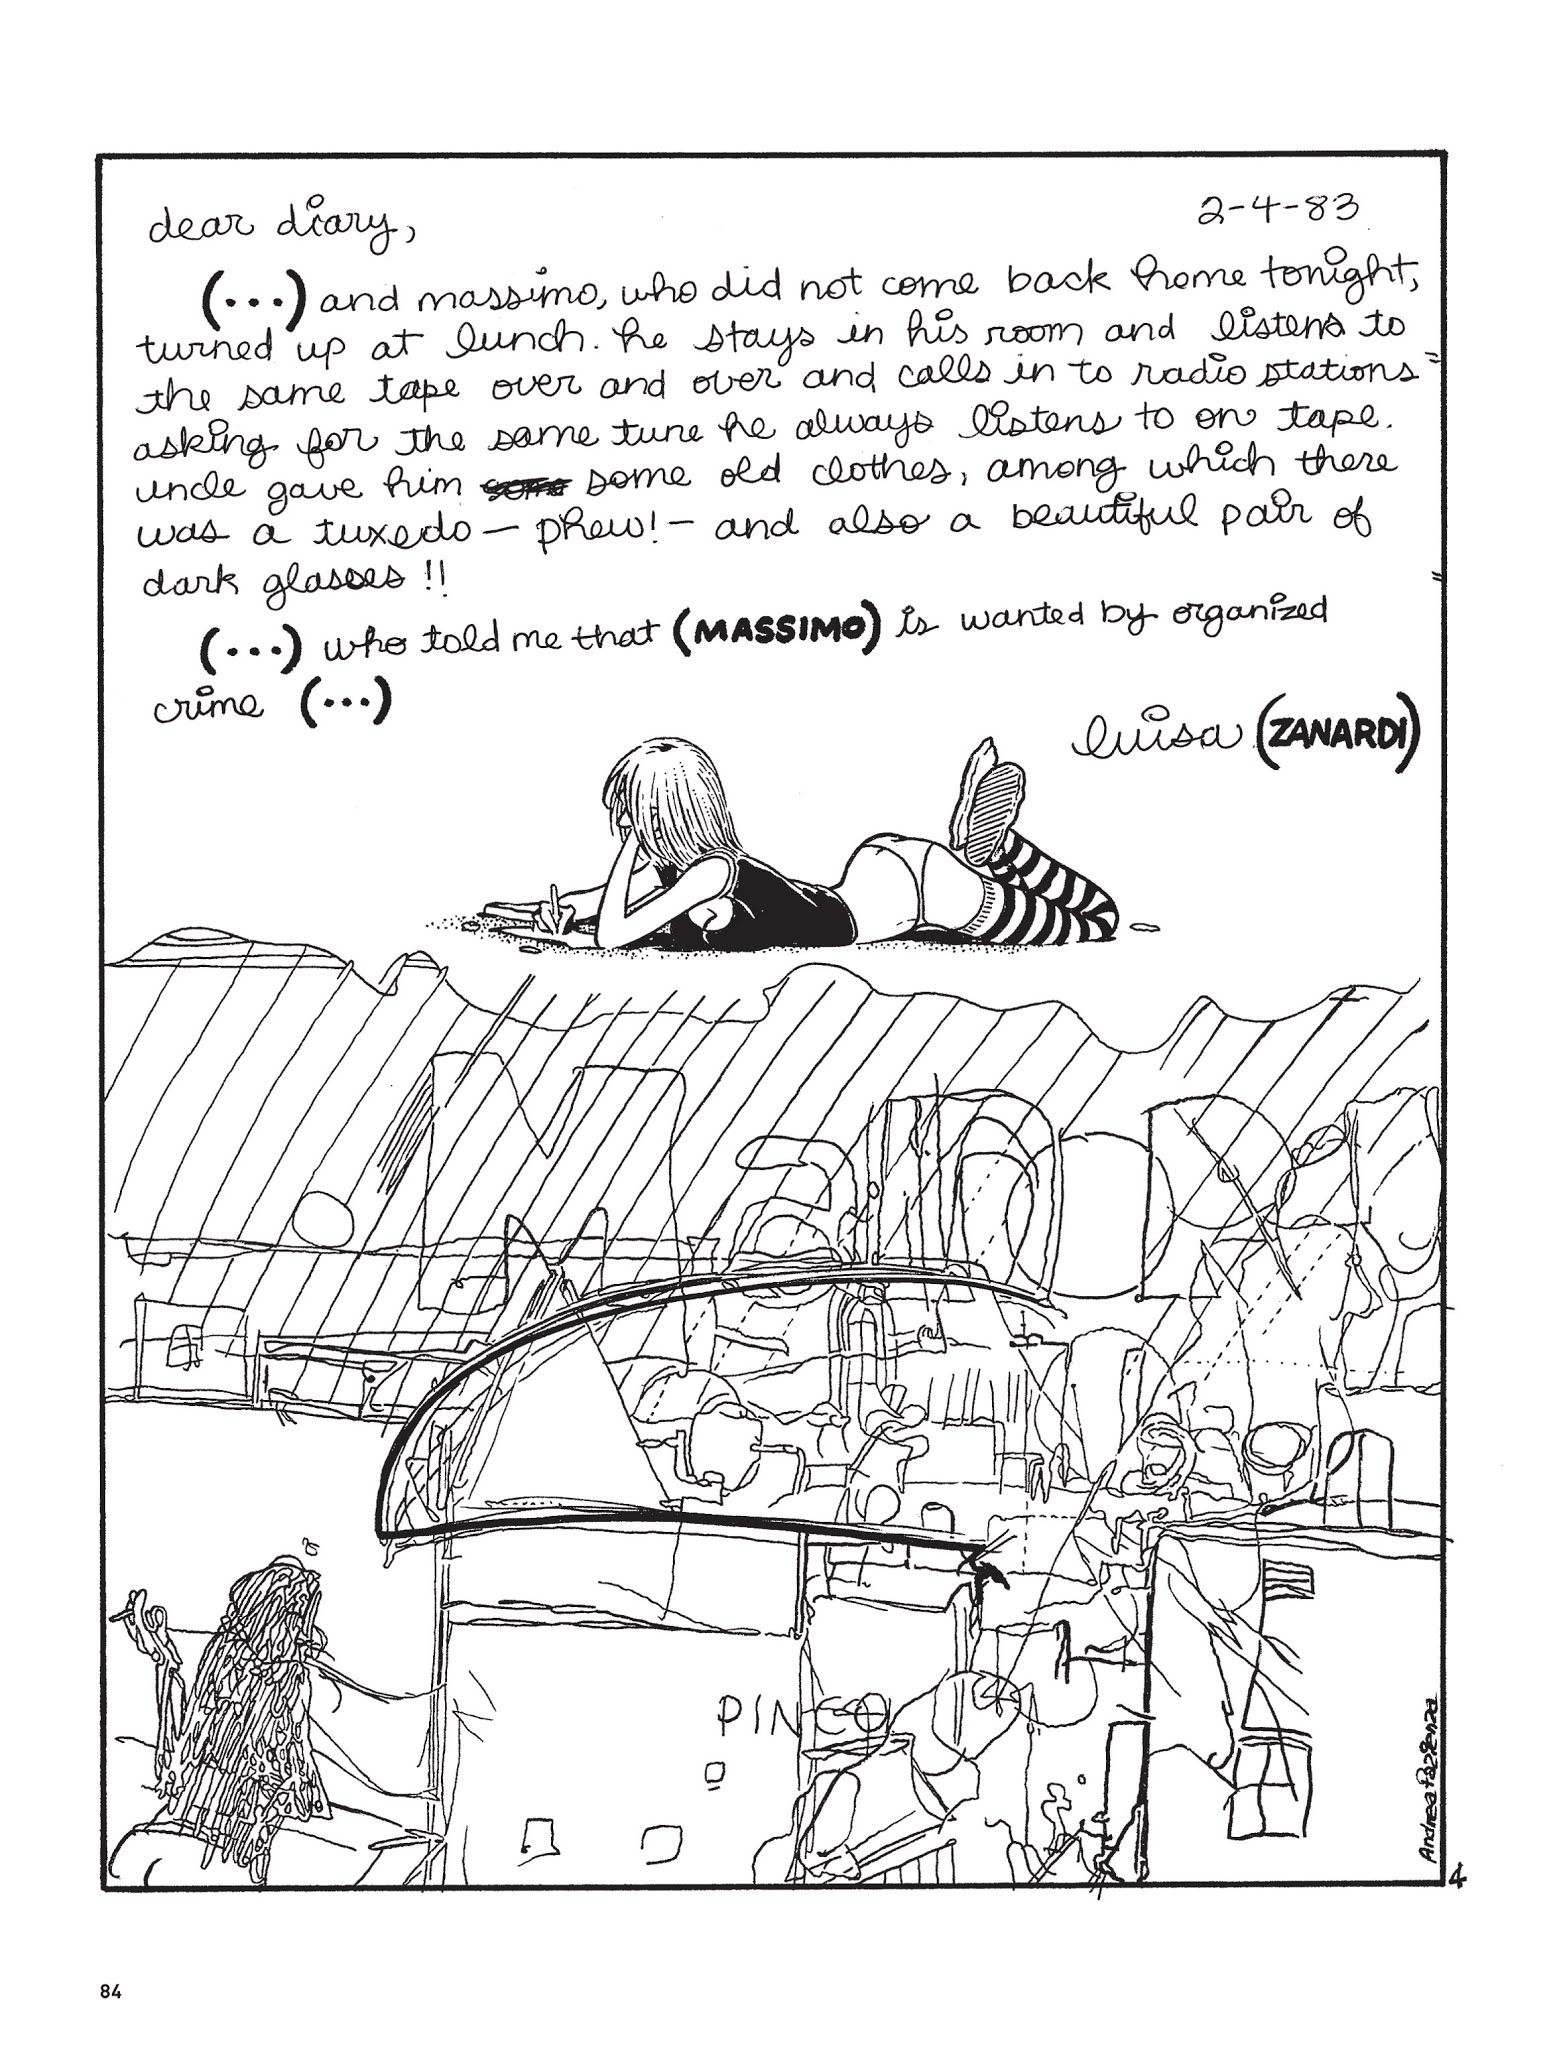 dear diary,
2-4-83
(...) and massimo, who did not come back home tonight,
turned up at lunch. he stays in his room and listens to
the same tape over and over and calls in to radio stations
asking for the same tune he always listens to on tape.
uncle gave him some some old clothes, among which there
was a tuxedo — phew! — and also a beautiful pair of
dark glasses!!
(...) who told me that (MASSIMO) is wanted by organized
crime (...)
luisa (ZANARDI)
PINCO
Andrea Pazienza
4
84